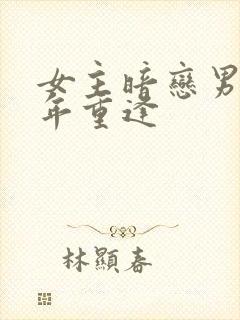 女主暗戀男
年重逢
林顯春